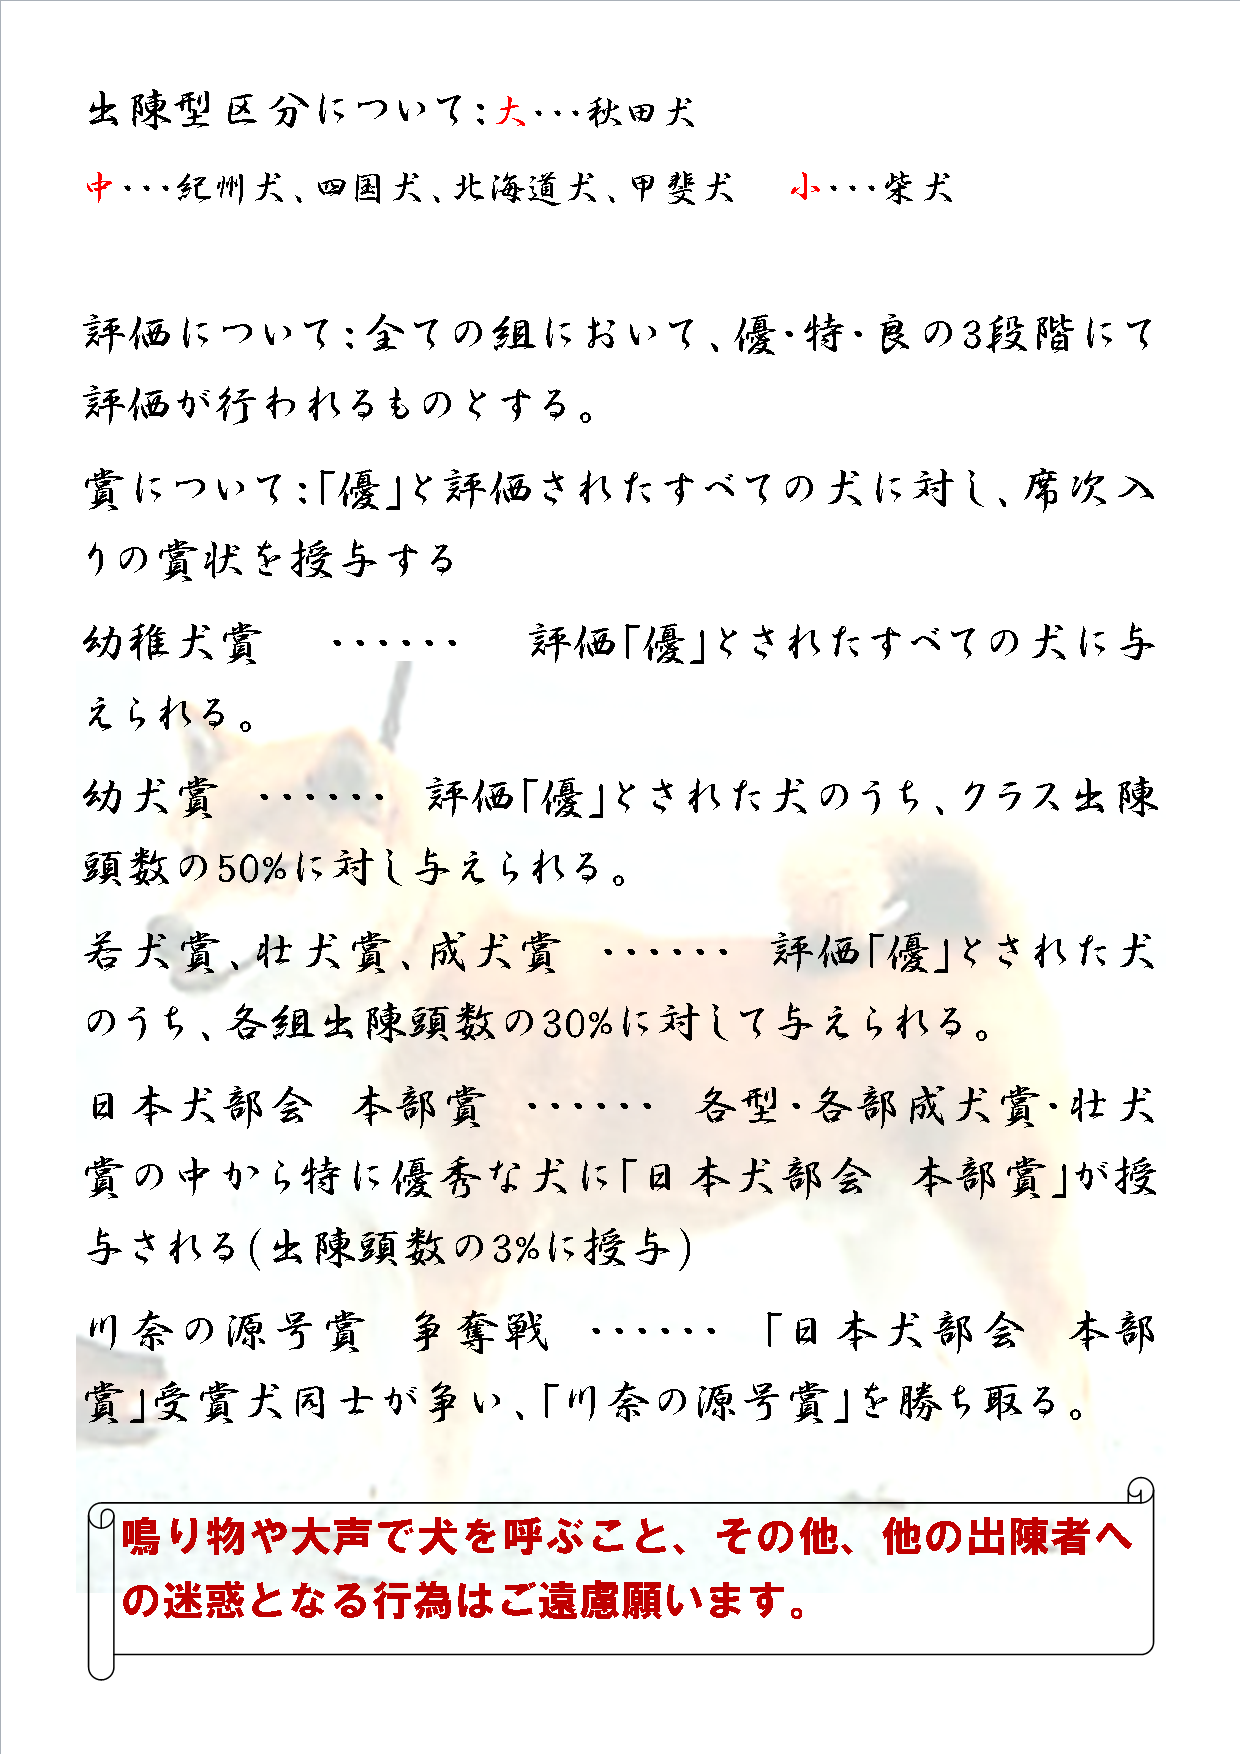 出陳型区分について：大・・・秋田犬
中・・・紀州犬、四国犬、北海道犬、甲斐犬　小・・・柴犬
評価について：全ての組において、優・特・良の3段階にて
評価が行われるものとする。
賞について：「優」と評価されたすべての犬に対し、席次入
りの賞状を授与する
幼稚犬賞　・・・・・・　評価「優」とされたすべての犬に与
えられる。
幼犬賞　・・・・・・　評価「優」とされた犬のうち、クラス出陳
頭数の50%に対し与えられる。
若犬賞、壮犬賞、成犬賞　・・・・・・　評価「優」とされた犬
のうち、各組出陳頭数の30%に対して与えられる。
日本犬部会　本部賞　・・・・・・　各型・各部成犬賞・壮犬
賞の中から特に優秀な犬に「日本犬部会　本部賞」が授
与される(出陳頭数の3%に授与)
川奈の源号賞　争奪戦　・・・・・・　「日本犬部会　本部
賞」受賞犬同士が争い、「川奈の源号賞」を勝ち取る。
鳴り物や大声で犬を呼ぶこと、その他、他の出陳者へ
の迷惑となる行為はご遠慮願います。